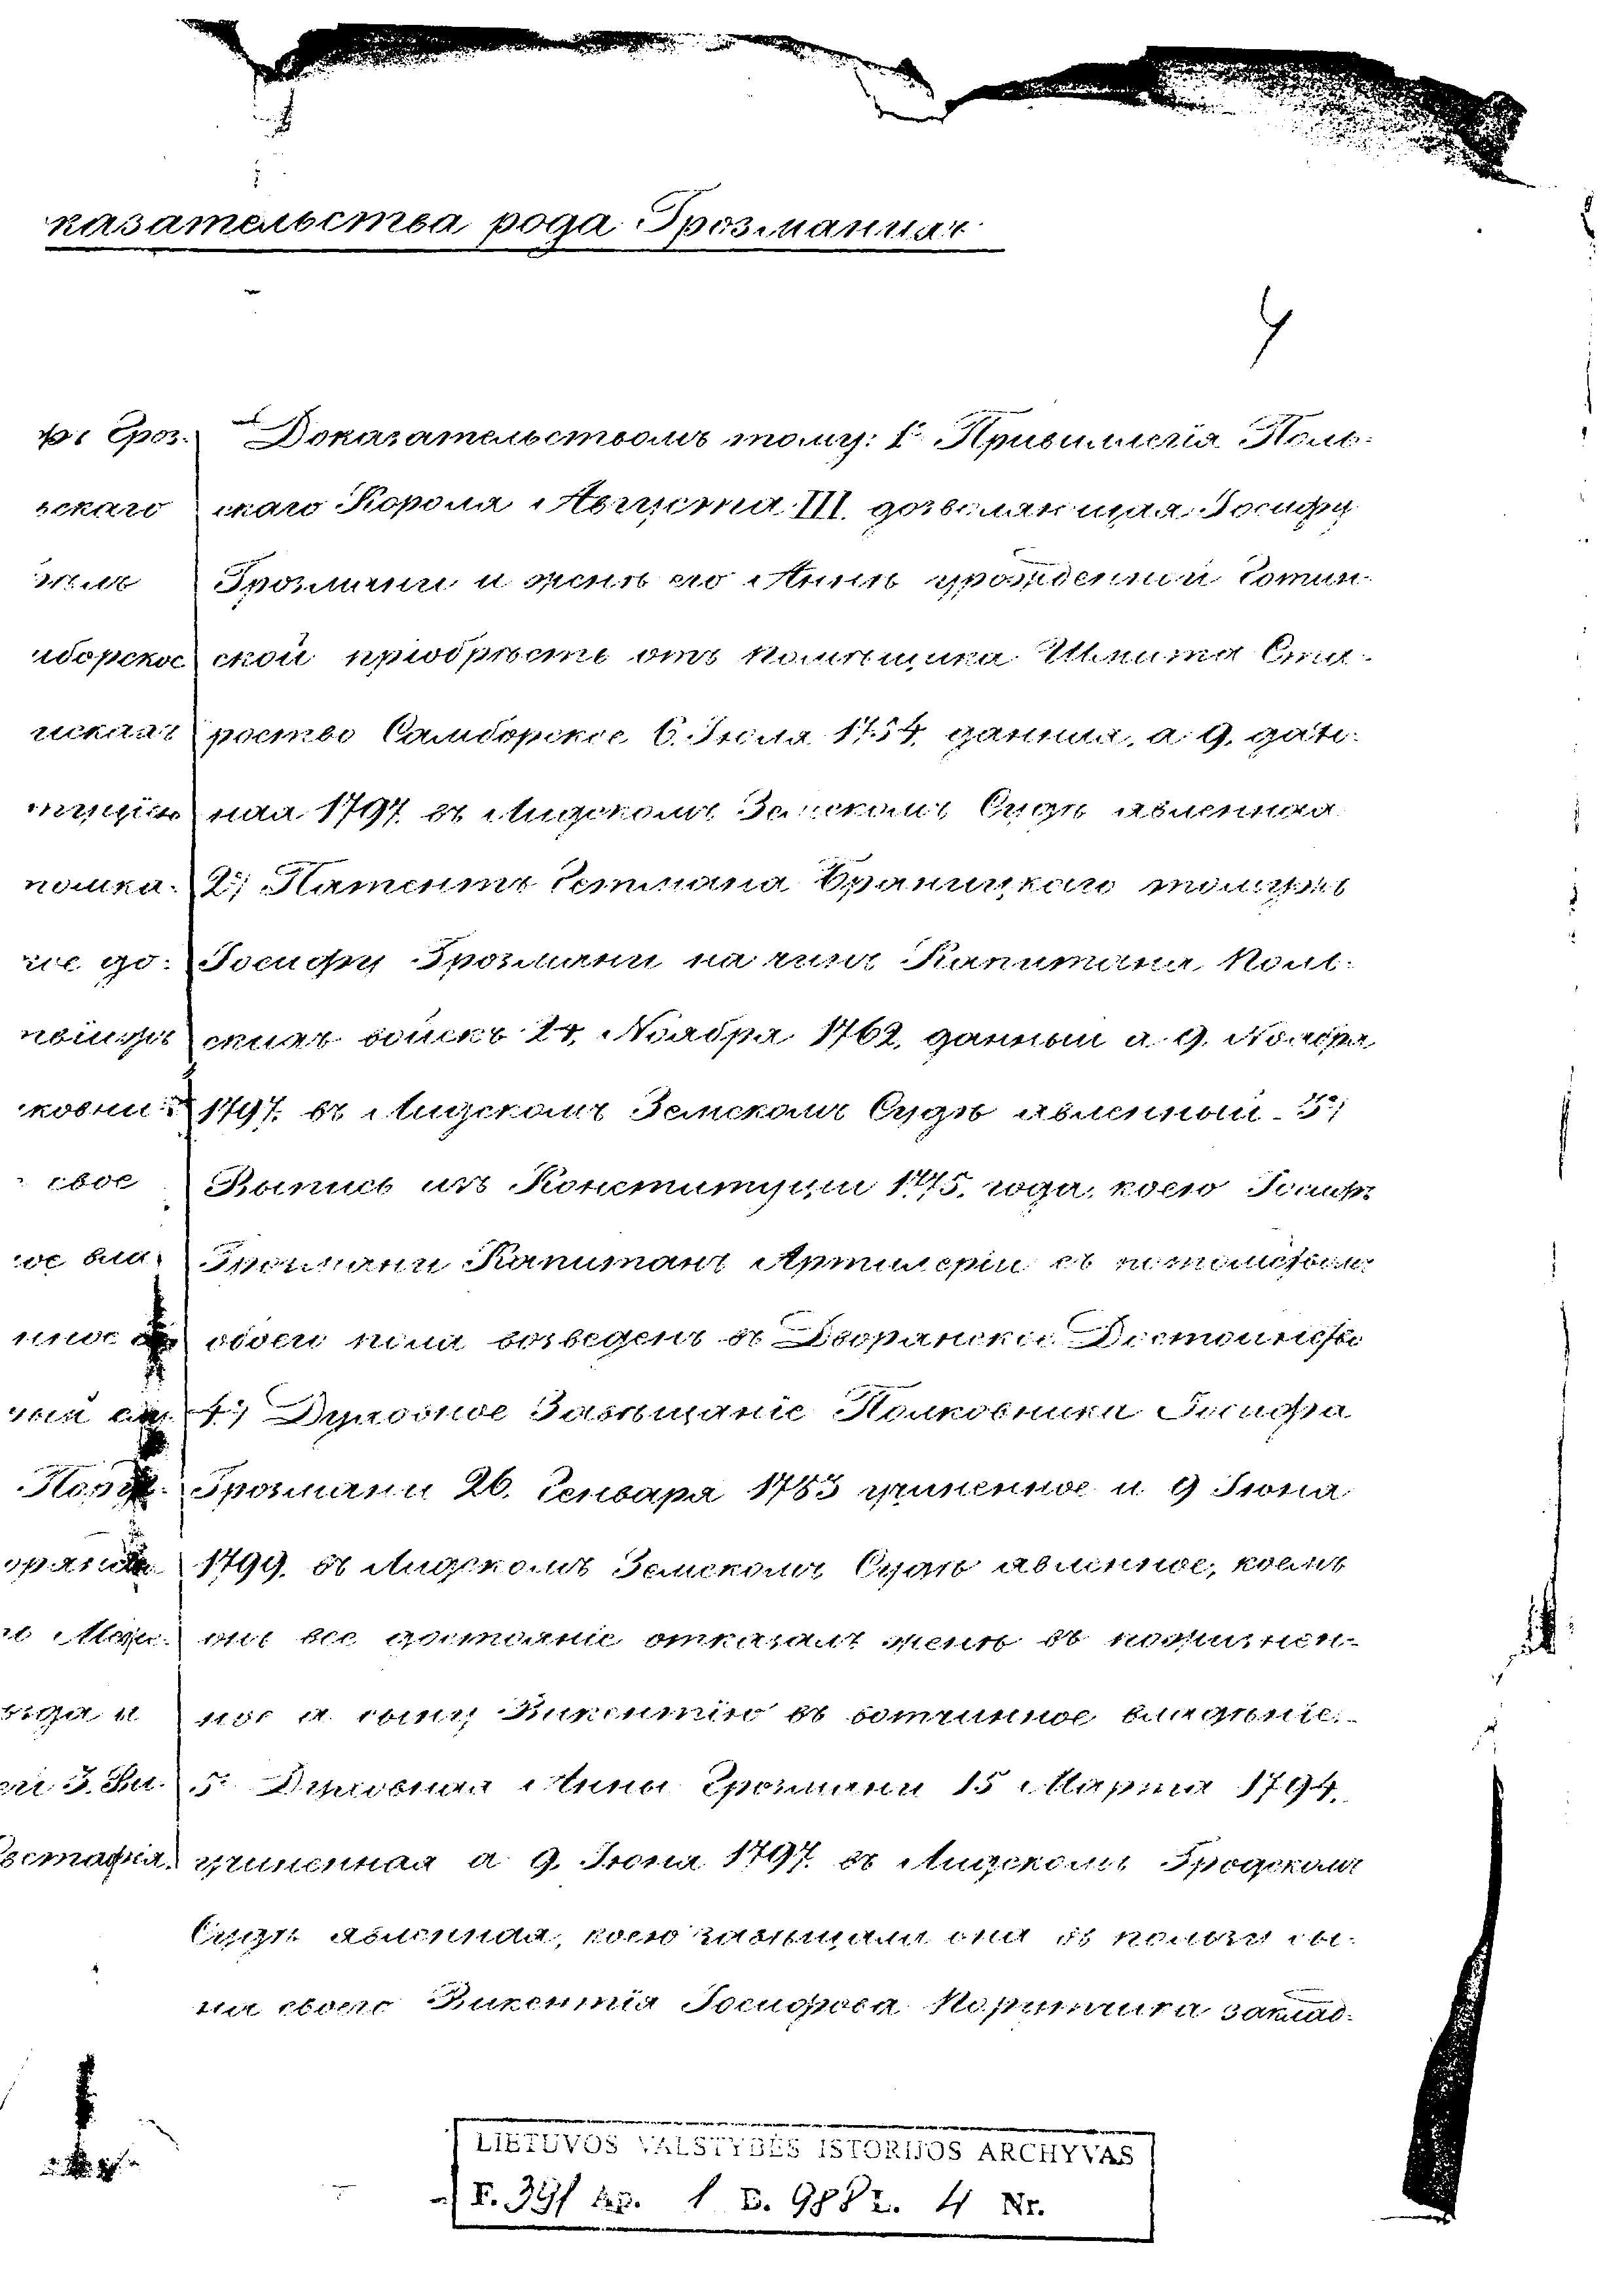 казательства рода Грозмани
4
Гроз. Доказательствомъ тому: 1е Привиллегія Поль-
скаго скаго Короля Августа III. дозволяющая Іосифу
Грозмани и женѣ его Аннѣ урожденной
иборское ской пріобрѣсть отъ помѣщика Шмита Ста-
роство Самборское 6. Іюля 1754. данная, а 9.
ная 1797. въ Лидскомъ Земскомъ Судѣ явленная
помка. 2е) Патентъ Гетмана Браницкаго томужъ
ое до: Іосифу Грозмани на чинъ Капитана Поль-
скихъ войскъ 24. Ноября 1762. данный а 9. Ноября
ковни 1797. въ Лидскомъ Земскомъ Судѣ явленный 3е)
свое Выпись изъ Конституціи 1775. года, коею Іосифъ
ое вла Грозмани Капитанъ Артилеріи съ потомствомъ
нное обоего пола возведенъ въ Дворянское Достоинство
4е) Духовное Завѣщаніе Полковника Іосифа
Грозмани 26. Генваря 1783 учиненное и 9 Іюна
1799. въ Лидскомъ Земскомъ Судѣ явленное, коемъ
онъ все достояніе отказалъ женѣ въ пожизнен-
ное а сыну Викентію въ вотчинное владѣніе.
5е Духовная Анны Грозмани 15 Марта 1794.
Евстафія. учиненная а 9. Іюня 1797. въ Лидскомъ Гродскомъ
Судѣ явленная, коею завѣщала она въ пользу сы-
на своего Викентія Іосифова Поручника заклад-
LIETUVOS VALSTYBĖS ISTORIJOS ARCHYVAS
F. 391 Ap. 1 B. 988 L. 4 Nr.